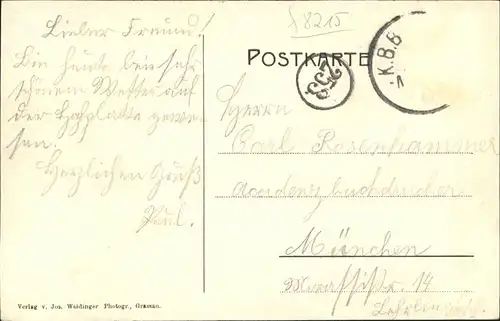 § 8215
Lieber Freund!
Bin heute bei sehr
schönem Wetter auf
der Hofplatte gewe-
sen.
Herzlichen Gruß
Paul.
POSTKARTE
K.B.B
253
Herrn
Carl Rosenhammer
Accidenzbuchdrucker
München
14
Verlag v. Jos. Weidinger Photogr., Grassau.